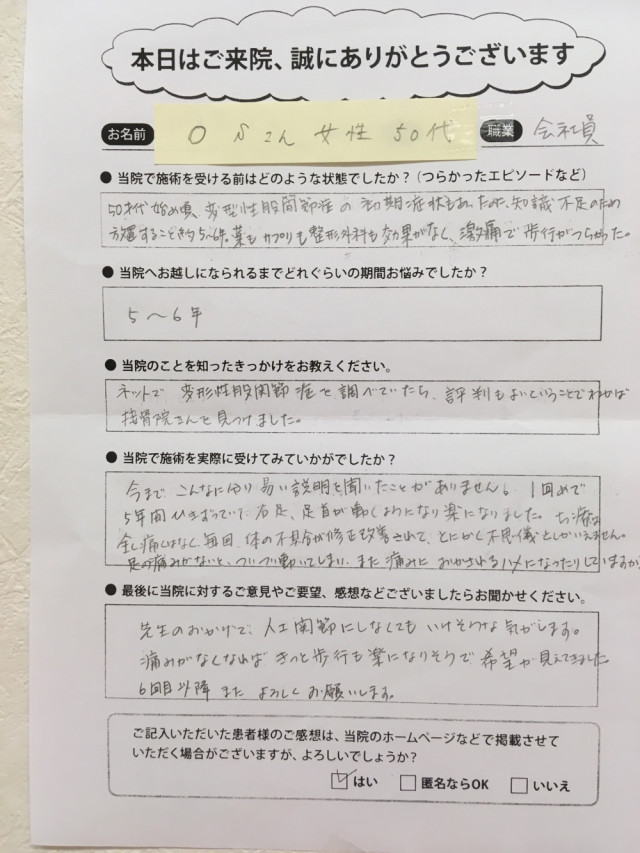 本日はご来院、誠にありがとうございます
お名前 O Sさん 女性 50代 職業 会社員
● 当院で施術を受ける前はどのような状態でしたか?(つらかったエピソードなど)
50才代始め頃、変型性股関節症の初期症状もあったが、知識不足のため
放置すること約5~6年。薬もサプリも整形外科も効果がなく、激痛で歩行がつらかった。
● 当院へお越しになられるまでどれぐらいの期間お悩みでしたか?
5~6年
● 当院のことを知ったきっかけをお教えください。
ネットで 変形性股関節症を調べていたら、評判もよいということでわかば
接骨院さんを見つけました。
● 当院で施術を実際に受けてみていかがでしたか?
今まで こんなに分り易い説明を聞いたことがありません。1回めで
5年間ひきずっていた右足、足首が動くようになり楽になりました。治療は
全く痛くはなく毎回、体の不具合が修正改善されて、とにかく不思議としかいえません。
足の痛みがないと、ついつい動いてしまい、また痛みにおかされるハメになったりしていますが
● 最後に当院に対するご意見やご要望、感想などございましたらお聞かせください。
先生のおかげで、人工関節にしなくても いけそうな気がします。
痛みがなくなれば きっと歩行も楽になりそうで 希望が見えてきました。
6回目以降 また よろしくお願いします。
ご記入いただいた患者様のご感想は、当院のホームページなどで掲載させて
いただく場合がございますが、よろしいでしょうか?
はい 匿名ならOK いいえ